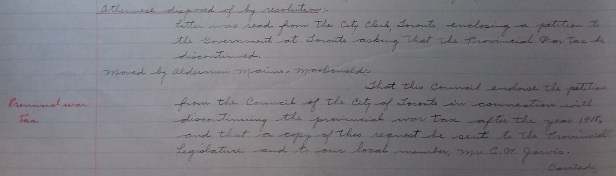 otherwise disposed of by resolution.
Letter was read from the City Clerk, Toronto, enclosing a petition to
the Government at Toronto asking that the Provincial War tax be
discontinued.
Moved by Alderman Mains - MacDonald:
That this Council endorse the petition
Provincial war
tax
from the Council of the City of Toronto in connection with
discontinuing the provincial war tax after the year 1918,
and that a copy of this request be sent to the Provincial
Legislature and to our local member, Mr. C. M.
Carried